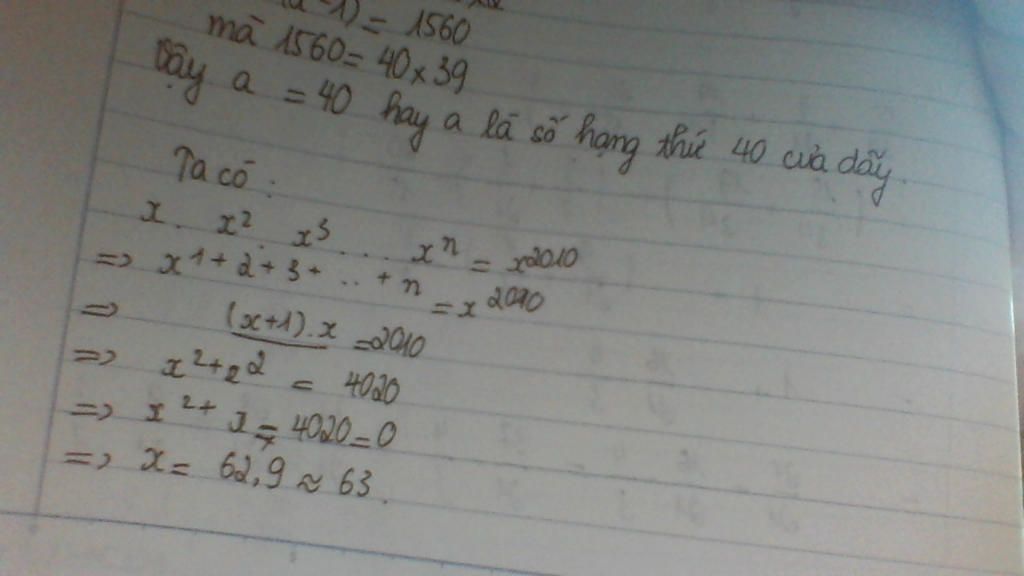 (a-1) = 1560
mà 1560 = 40 x 39
Vậy a = 40 hay a là số hạng thứ 40 của dãy.
Ta có:
x . x² . x³ ... xⁿ = x²⁰¹⁰
=> x¹⁺²⁺³⁺···⁺ⁿ = x²⁰¹⁰
=> (x+1).x = 2010
2
=> x² + x = 4020
=> x² + x - 4020 = 0
=> x = 62,9 ≈ 63.